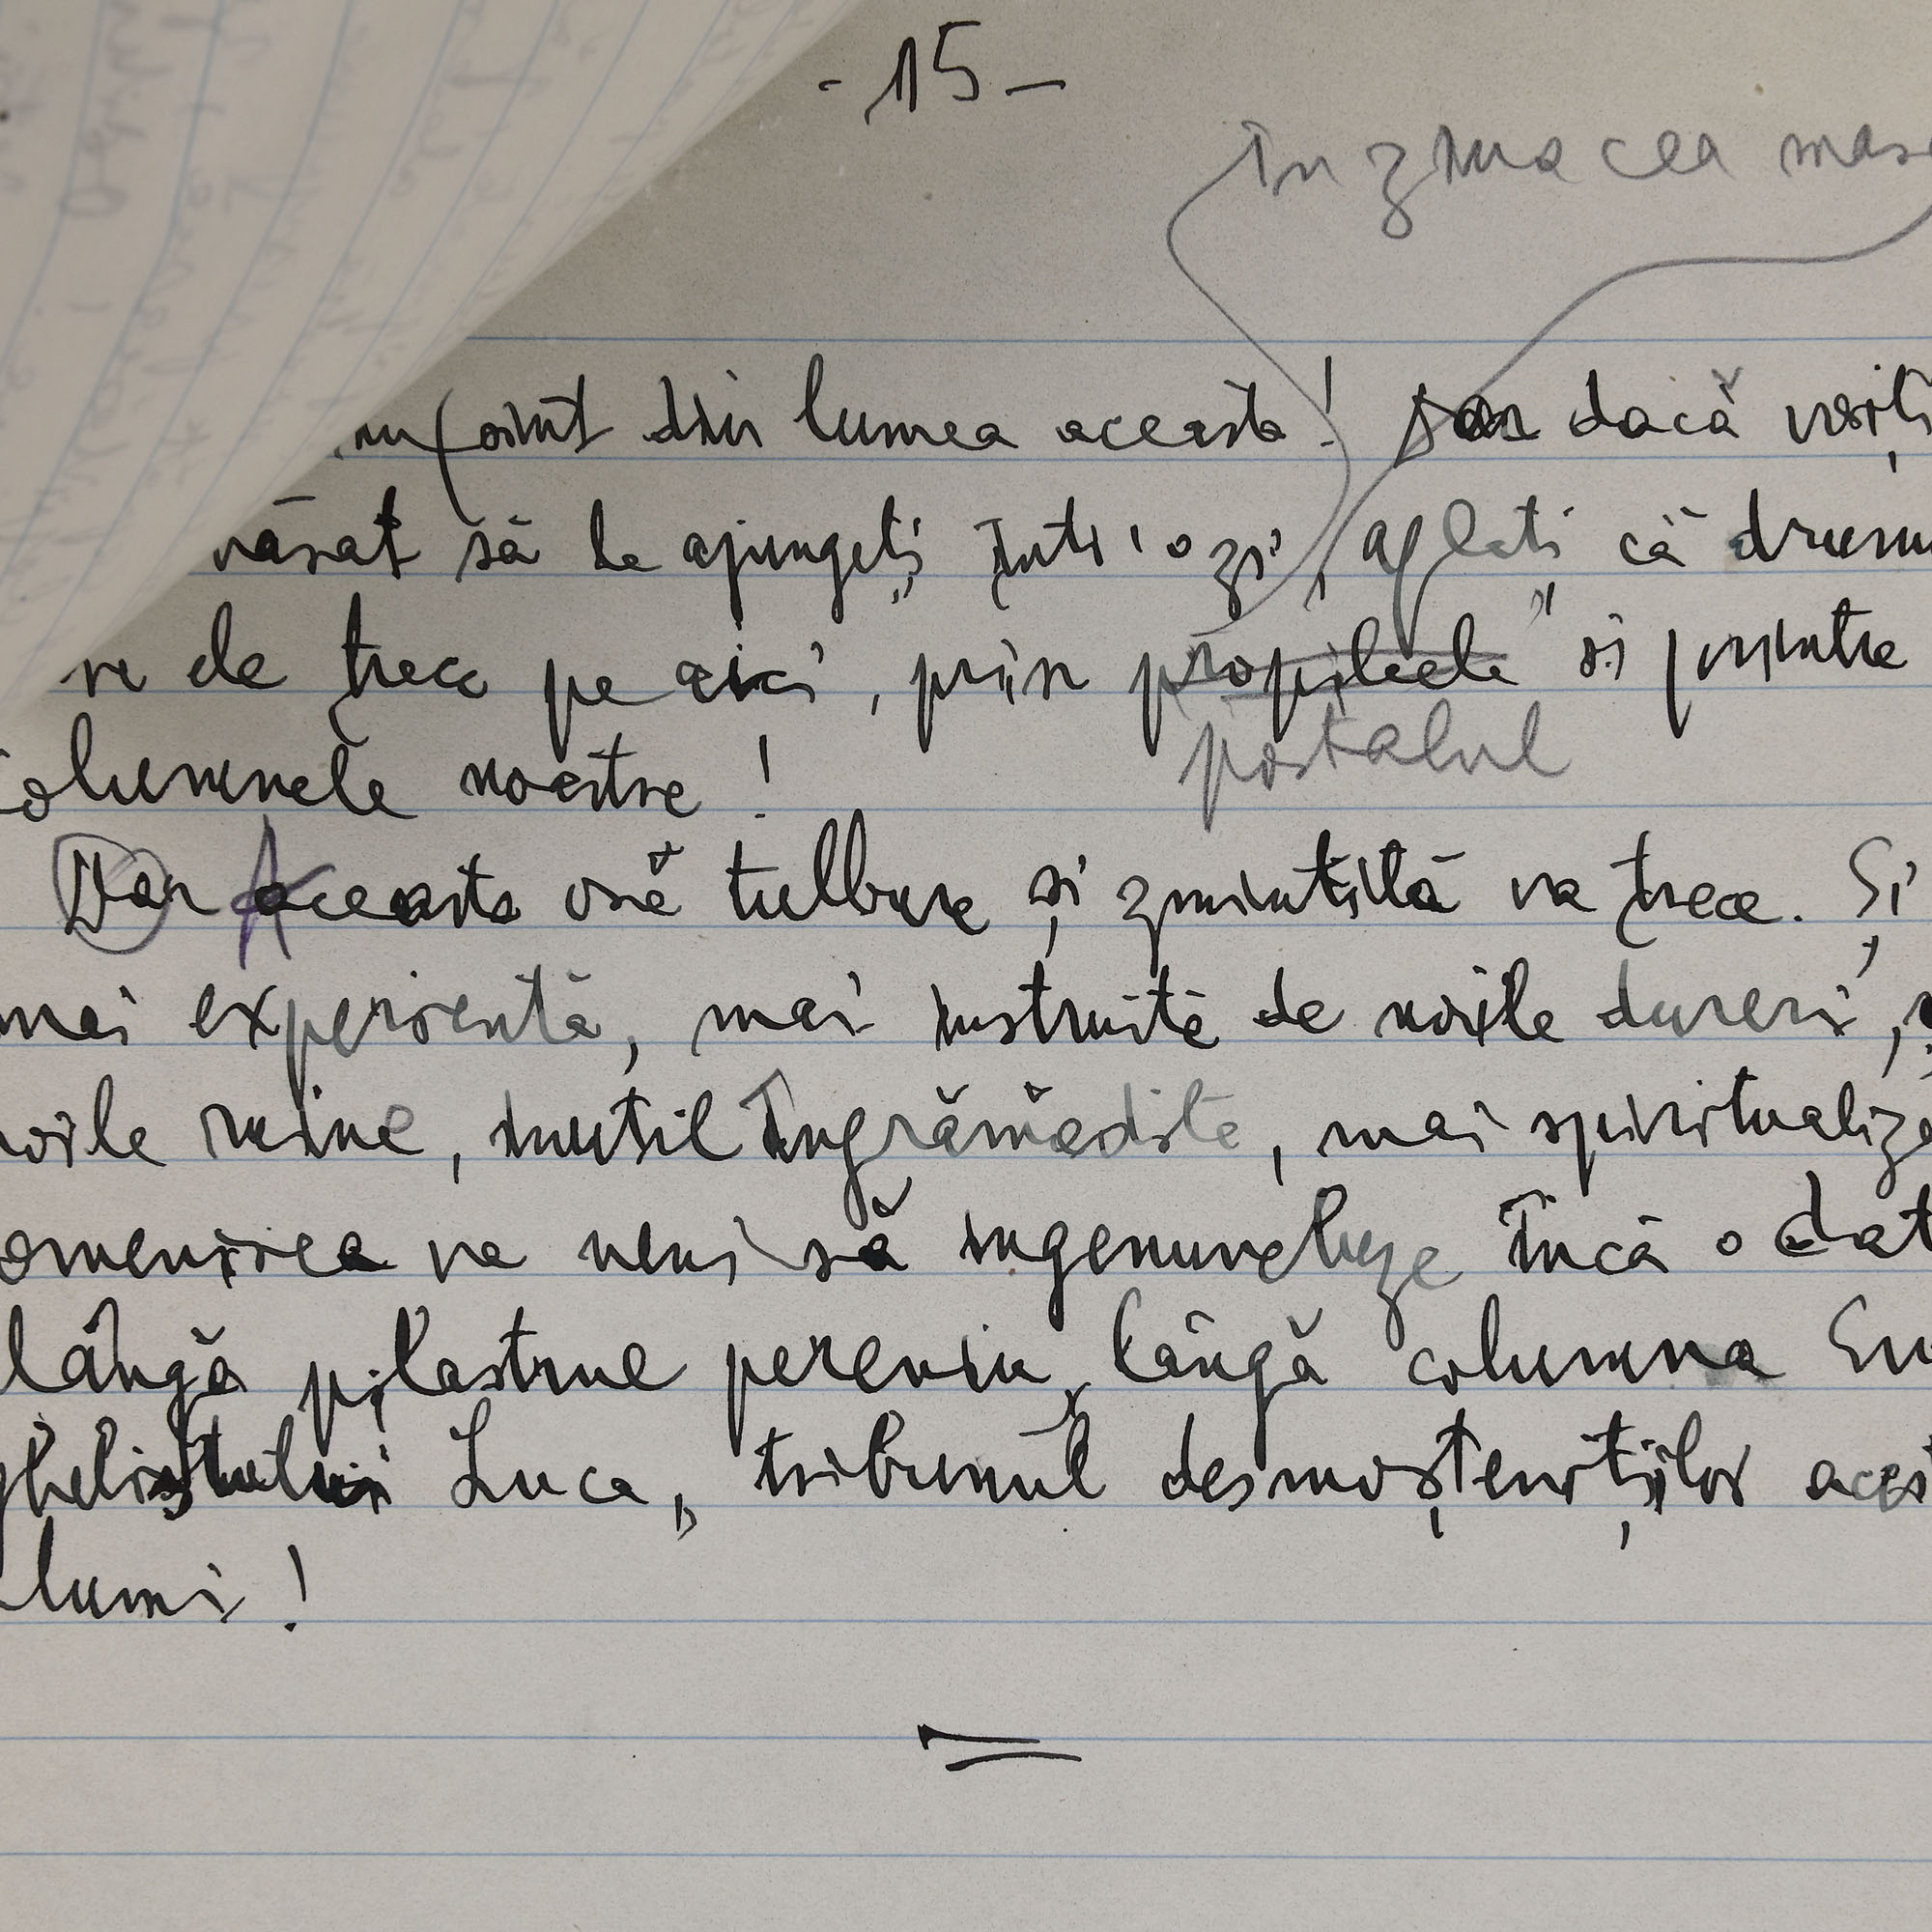 - 15 -
În ziua cea
nu sînt din lumea aceasta! Dar dacă voiți
să le ajungeți într'o zi, aflați că drumu
re de trece pe aici, prin propileele și printre
portalul
columnele noastre!
Dar Aceasta oră tulbure și zmintită va trece. Și
mai experientă, mai instruită de noile dureri,
noile ruine, inutil îngrămădite, mai spiritualiza
omenirea va veni să ingenuncheze încă odat
lângă pilastrue pereniu, lângă columna Eva
ghelistului Luca, tribunul desmoșteniților aces
lumi!